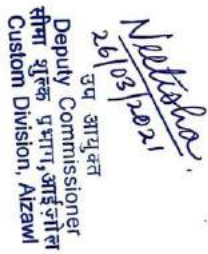 Neetisha
26/03/2021
उप आयुक्त
Deputy Commissioner
सीमा शुल्क प्रभाग, आईज़ोल
Custom Division, Aizawl